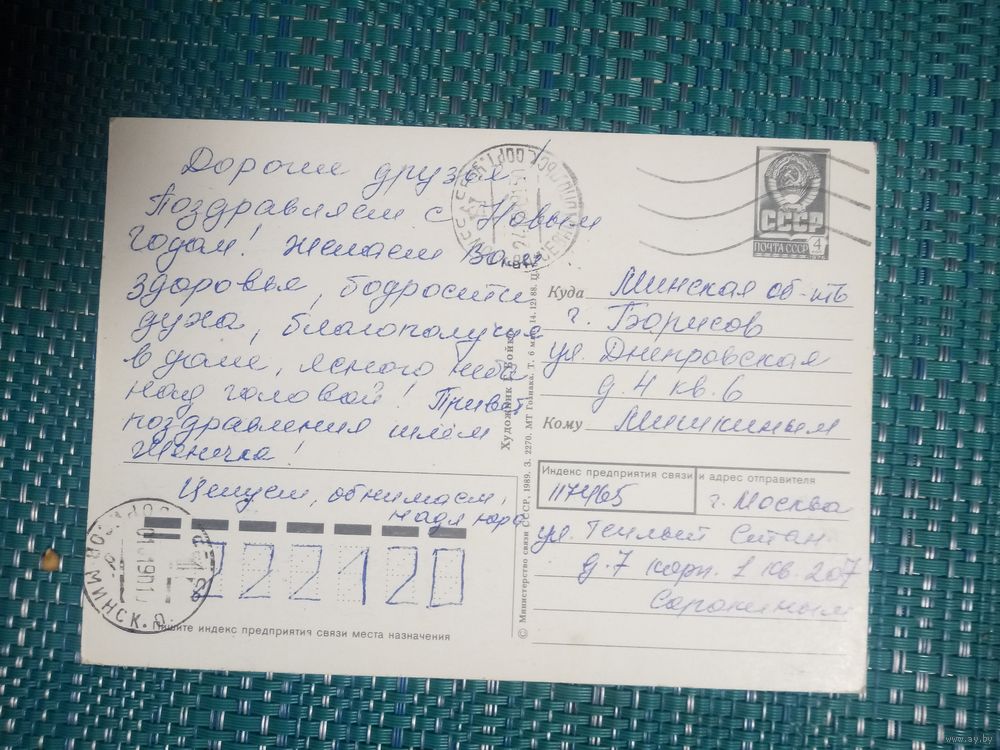 Дорогие друзья!
Поздравляем с Новым
годом! Желаем Вам
здоровья, бодрости
духа, благополучия
в доме, ясного неба
над головой! Привет
поздравления шлём
Женечка!
Целуем, обнимаем,
Надя Юра
222120
Пишите индекс предприятия связи места назначения
МИНСК
СССР
ПОЧТА СССР 4
1976
Куда Минская об-ть
г. Борисов
ул. Днепровская
д. 4 кв. 6
Кому Мишкиным
Индекс предприятия связи и адрес отправителя
117465 г. Москва
ул. Теплый Стан
д. 7 корп. 1 кв. 207
Сорокиным
Художник Г. Бойко
© Министерство связи СССР, 1989. З. 2270. МТ Гознака. Т. 6 млн. 14.12.88. Ц.
www.ay.by